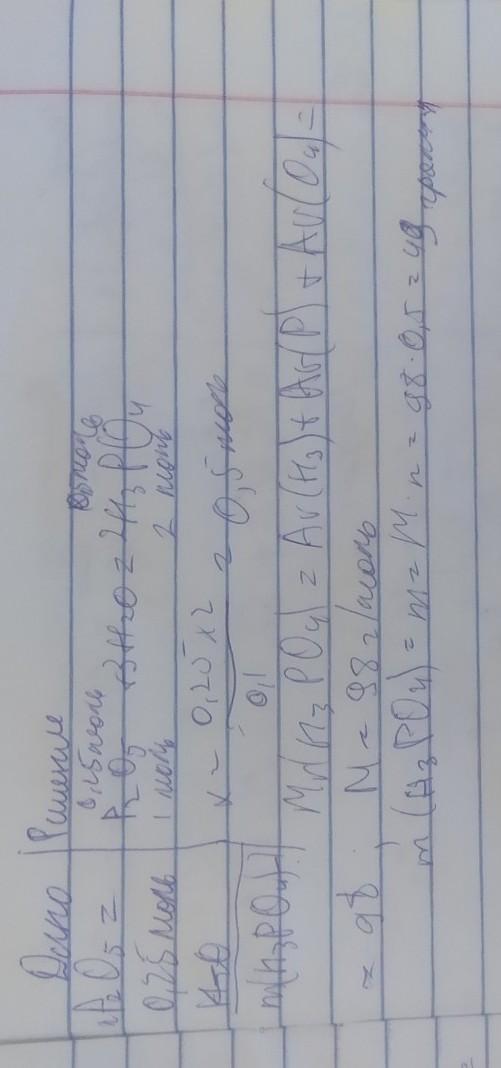 Дано Решение
0,25 моль 0,5 моль
P2O5 = P2O5 + 3H2O = 2H3PO4
0,25 моль 1 моль 2 моль
x = 0,25 x 2 / 0,1 = 0,5 моль
m(H3PO4)? Mr(H3PO4) = Ar(H3) + Ar(P) + Ar(O4) =
= 98 M = 98 г/моль
m(H3PO4) = m = M · n = 98 · 0,5 = 49 грамм